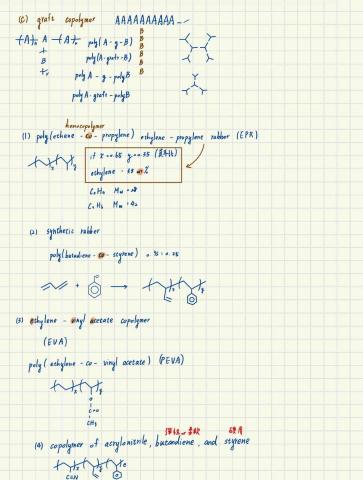 (C) graft copolymer AAAAAAAAAA
-(A)n A -(A)n poly(A-g-B) B
B poly(A-graft-B) B
poly A-g-polyB B
poly A-graft-polyB B
homocopolymer
(1) poly(ethene-co-propylene) ethylene-propylene rubber (EPR)
if x=0.65 y=0.35
ethylene - wt%
C2H4 Mw=28
C3H6 Mw=42
(2) synthetic rubber
poly(butadiene-co-styrene)
+
(3) ethylene-vinyl acetate copolymer
(EVA)
poly(ethylene-co-vinyl acetate) (PEVA)
O
C=O
CH3
(4) copolymer of acrylonitrile, butandiene, and styrene
C≡N